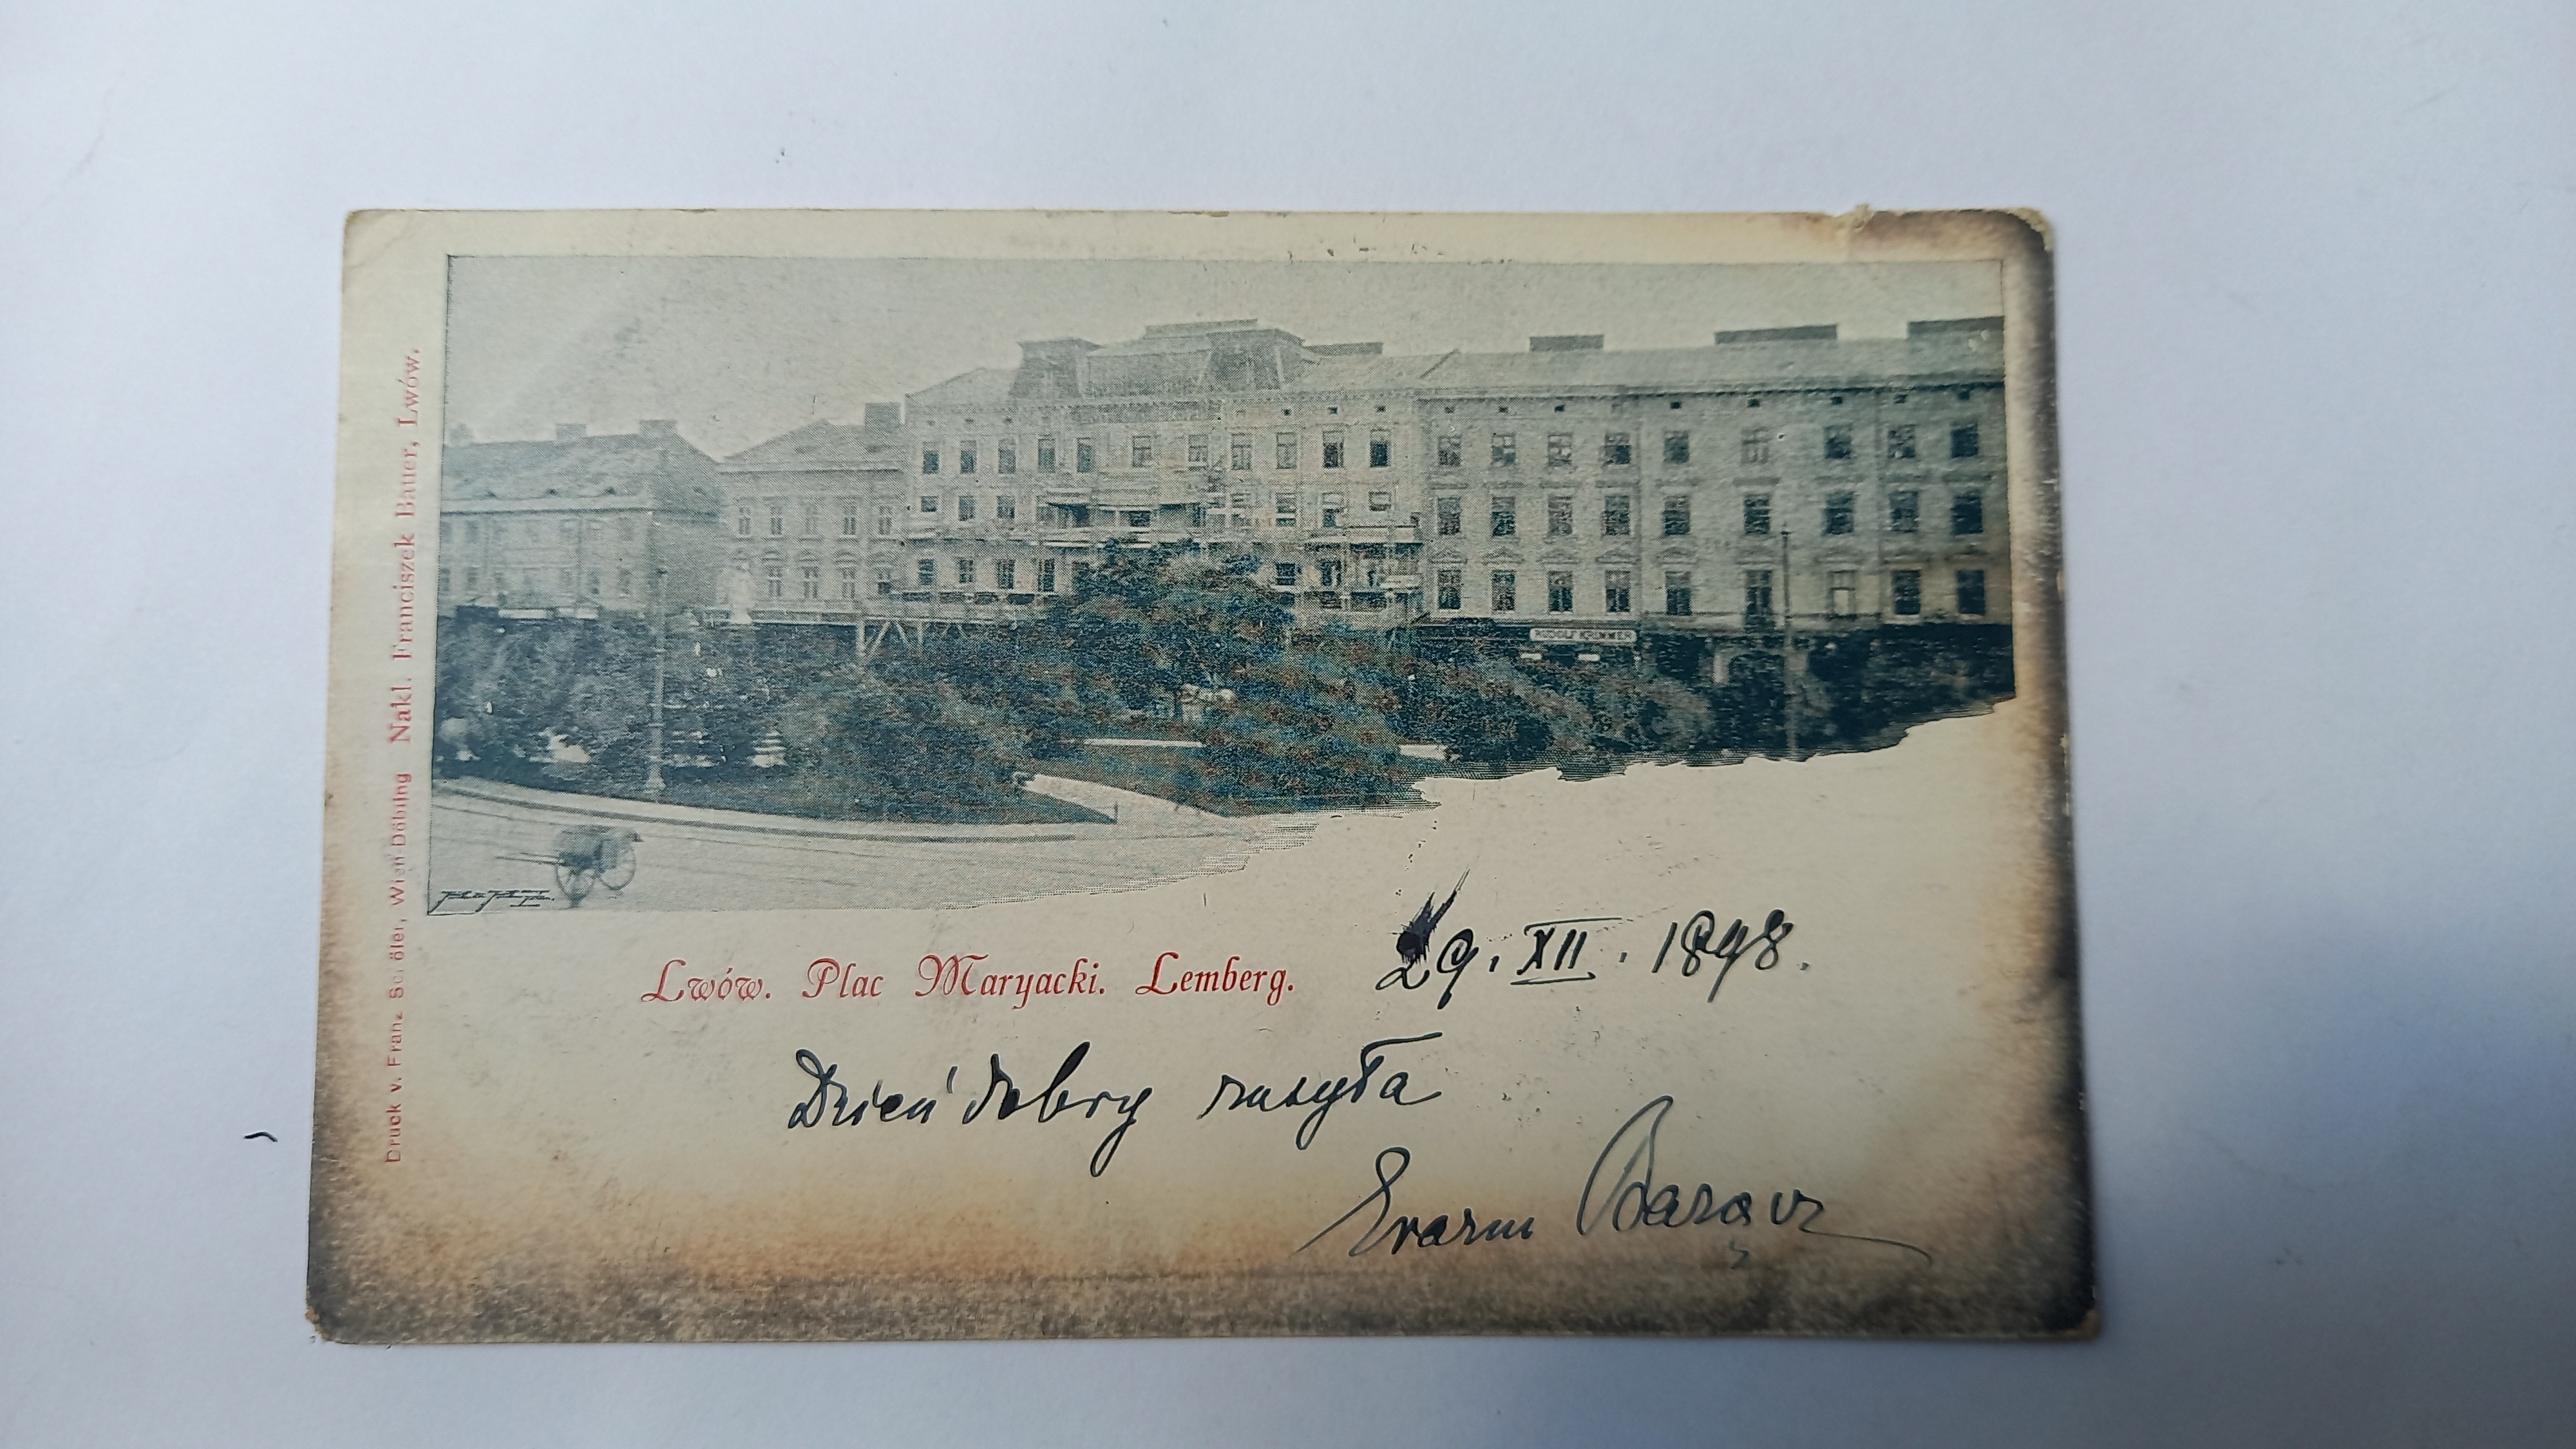 Druck v. Franz Schöler, Wien Döbling Nakl. Franciszek Bauer, Lwów.
RUDOLF KRIMMER
Lwów. Plac Maryacki. Lemberg.
29. XII. 1898.
Dzień dobry zasyła
Barącz